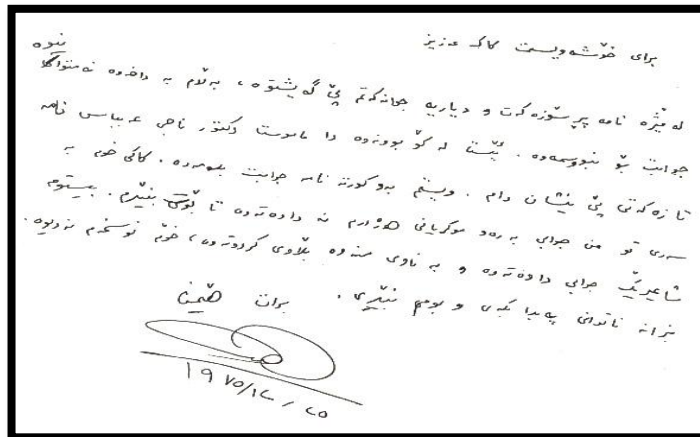 برای خۆشەویست کاک عزیز
لە مێژە نامە پڕ سۆزەکەت و دیاریە جوانەکەتم پێ گەیشتوە، بەڵام بە داخەوە نەمتوانیوە
جوابت بۆ بنووسمەوە. ئێستا لە کۆ بوونەوە دا ماموستا دکتور ناجی عەبباس نامە
تازەکەتی پێ نیشان دام. ویستم بەو کورتە نامە جوابت بدەمەوە. کاکی خۆم بە
سەری تو من جوابی بەرەو موکریانی هەژارم نە داوەتەوە تا بۆت بنێرم. بیستوم
شاعیرێک جوابی داوەتەوە و بە ناوی منەوە بڵاوی کردوتەوە، خۆم نوسخەم نەدیوە.
بزانە ناتوانی پەیدا بکەی و بومی بنێری. برات هێمن
١٩٧٥/١٢/٢٥